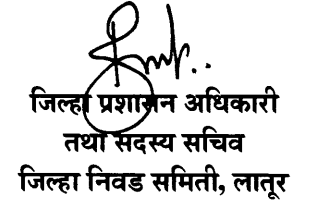 जिल्हा प्रशासन अधिकारी
तथा सदस्य सचिव
जिल्हा निवड समिती, लातूर